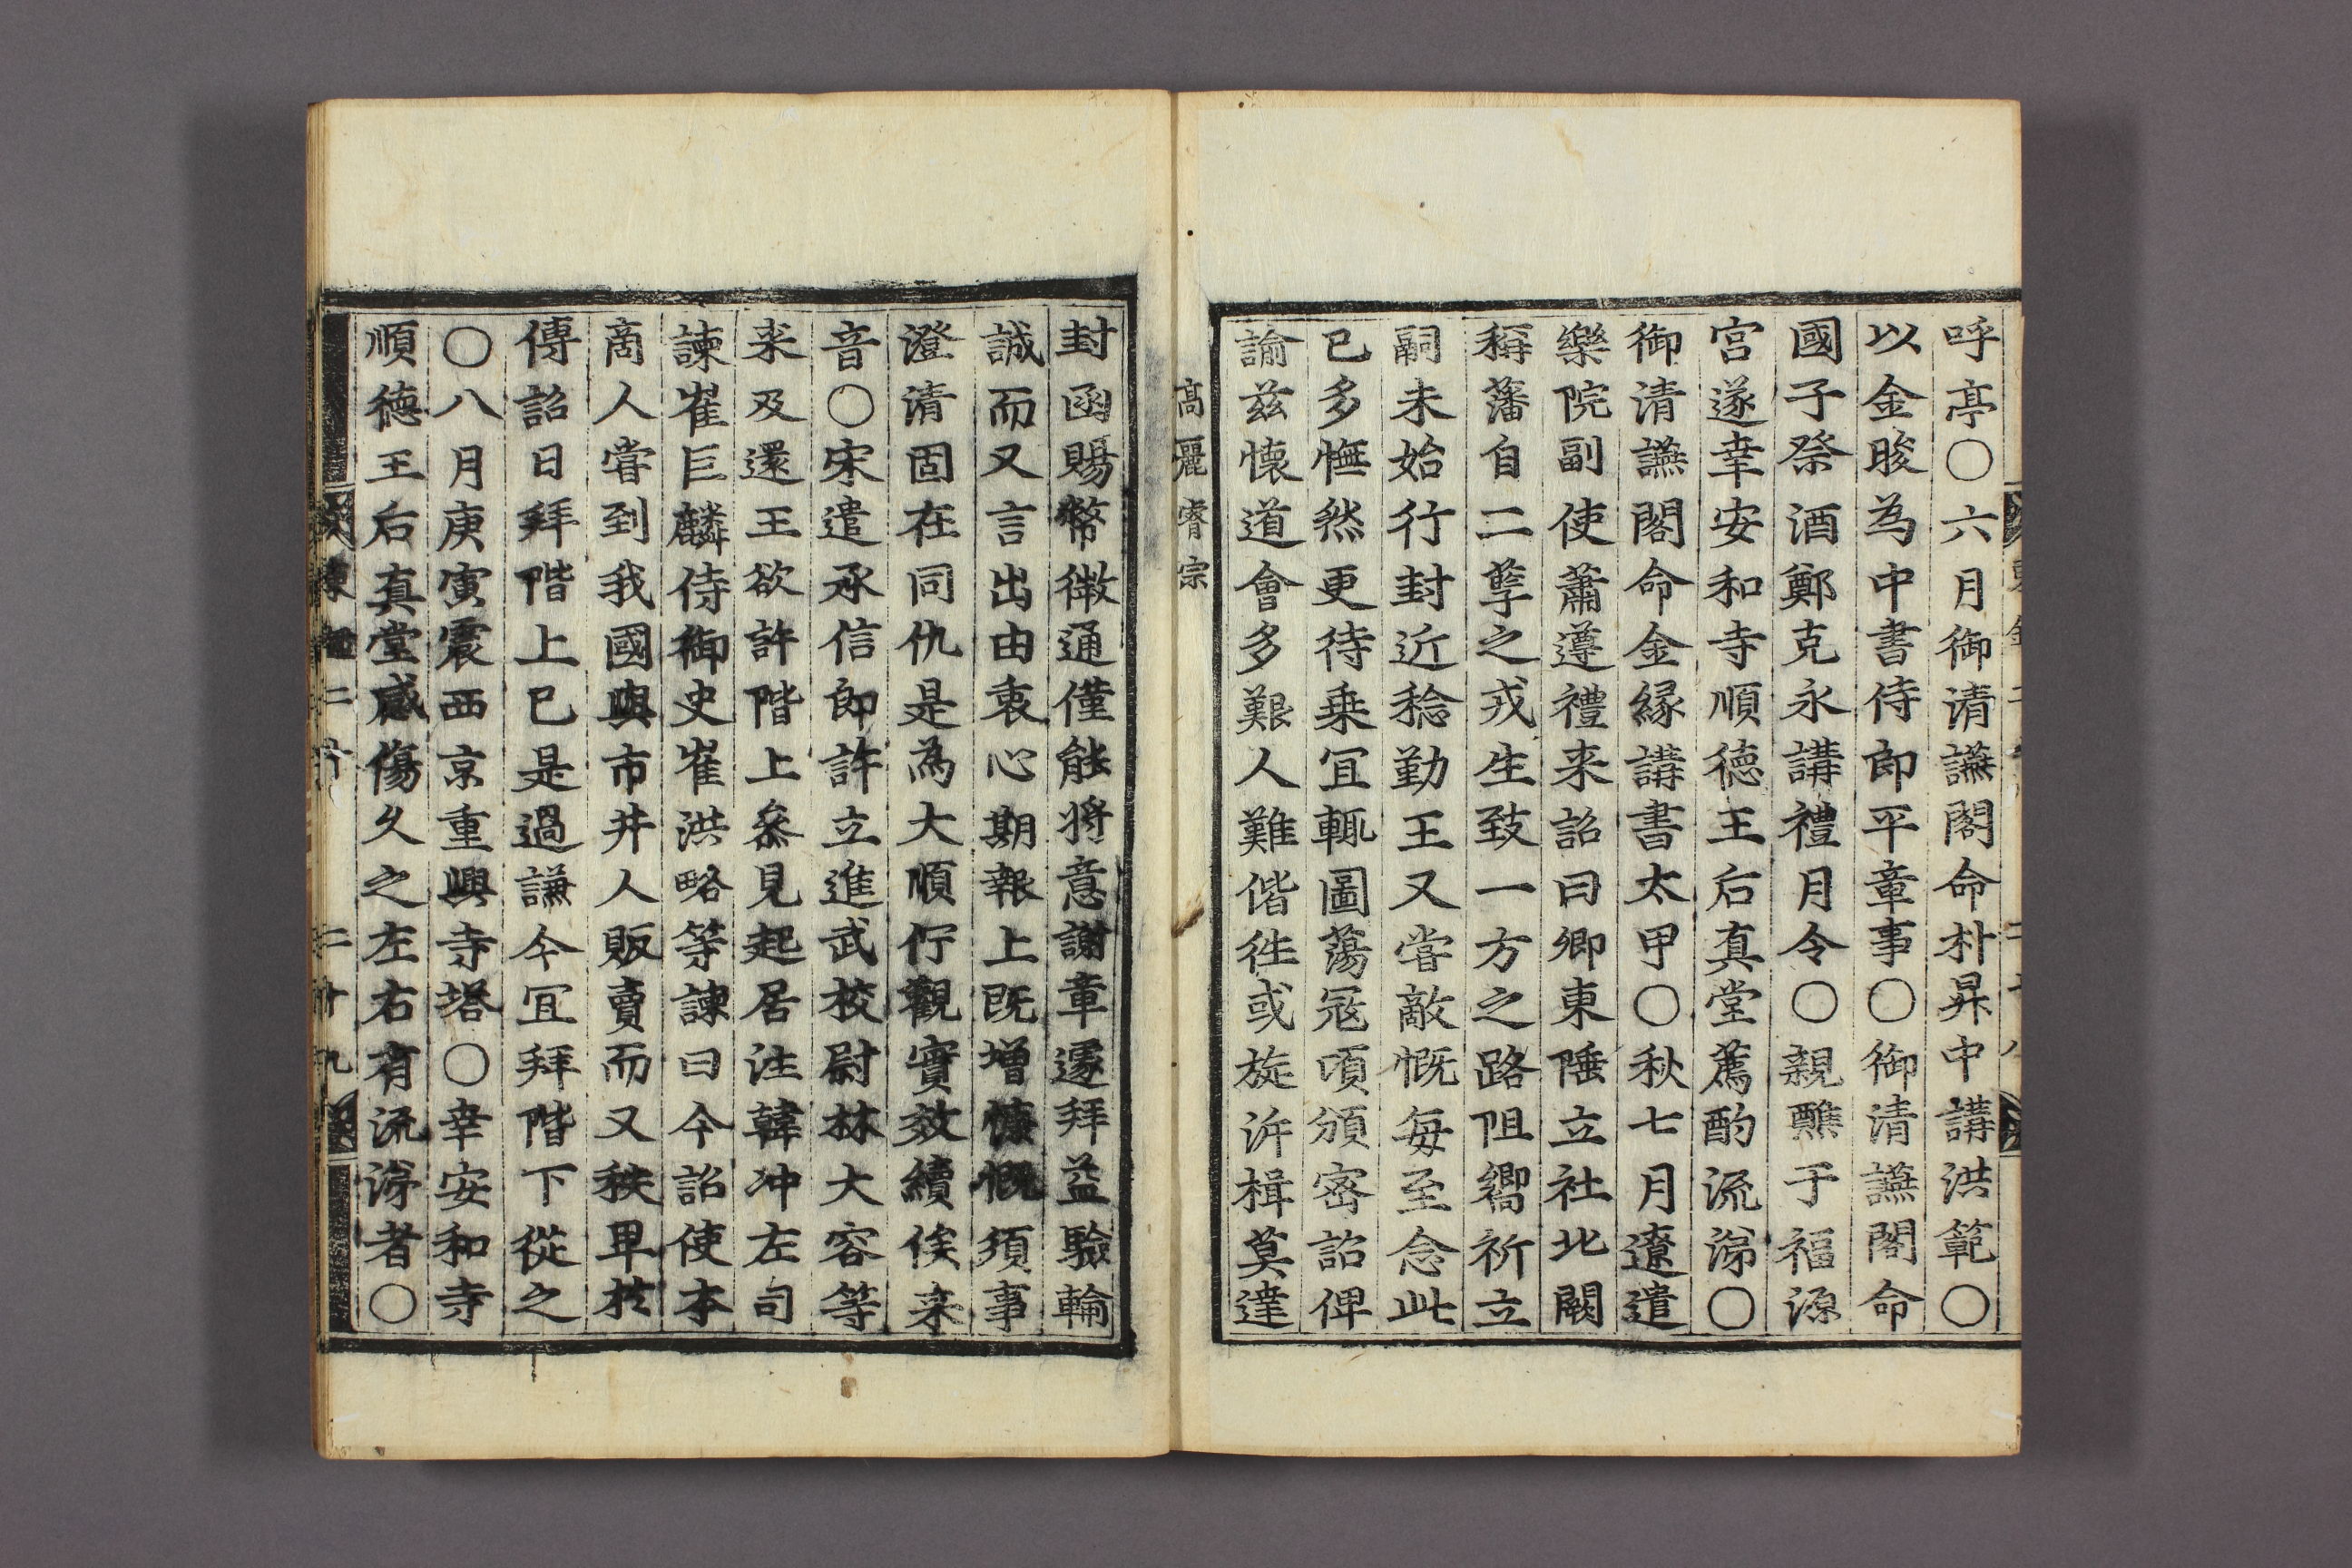 呼亭○六月御清讌閣命朴昇中講洪範○
以金晙為中書侍郎平章事○御清讌閣命
國子祭酒鄭克永講禮月令○親醮于福源
宮遂幸安和寺順德王后真堂薦酌流涕○
御清讌閣命金緣講書太甲○秋七月遼遣
樂院副使蕭遵禮来詔曰卿東陲立社北闕
稱藩自二孽之戎生致一方之路阻嚮祈立
嗣未始行封近稔勤王又嘗敵愾每至念此
已多憮然更待乗冝輒圖蕩冦頃頒宻詔俾
諭兹懐道會多艱人難偕徃或旋泝楫莫達
高麗睿宗
封函賜幣徴通僅能将意謝章遽拜益驗輪
誠而又言出由衷心期報上既增慷慨須事
澄清固在同仇是為大順佇觀實效續俟来
音○宋遣承信郎許立進武校尉林大容等
来及還王欲許階上叅見起居注韓冲左司
諫崔巨麟侍御史崔洪略等諫曰今詔使本
商人嘗到我國與市井人販賣而又秩卑扵
傳詔日拜階上已是過謙今冝拜階下從之
○八月庚寅震西京重興寺塔○幸安和寺
順德王后真堂感傷久之左右有流涕者○
二十九